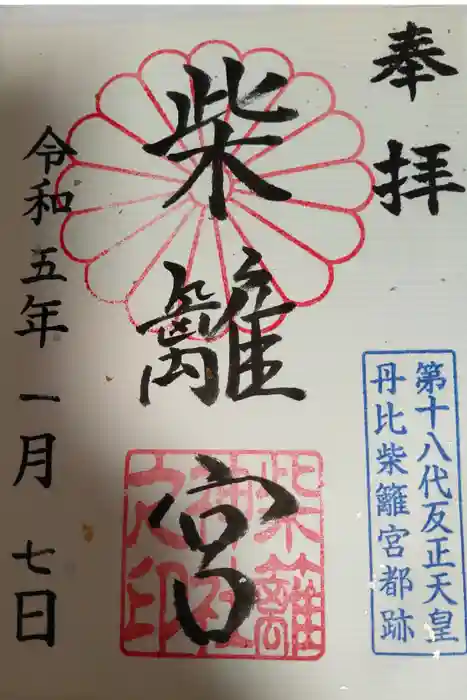 奉拝
柴離宮
第十八代反正天皇
丹比柴籬宮都跡
柴離
神社
之印
令和五年一月七日